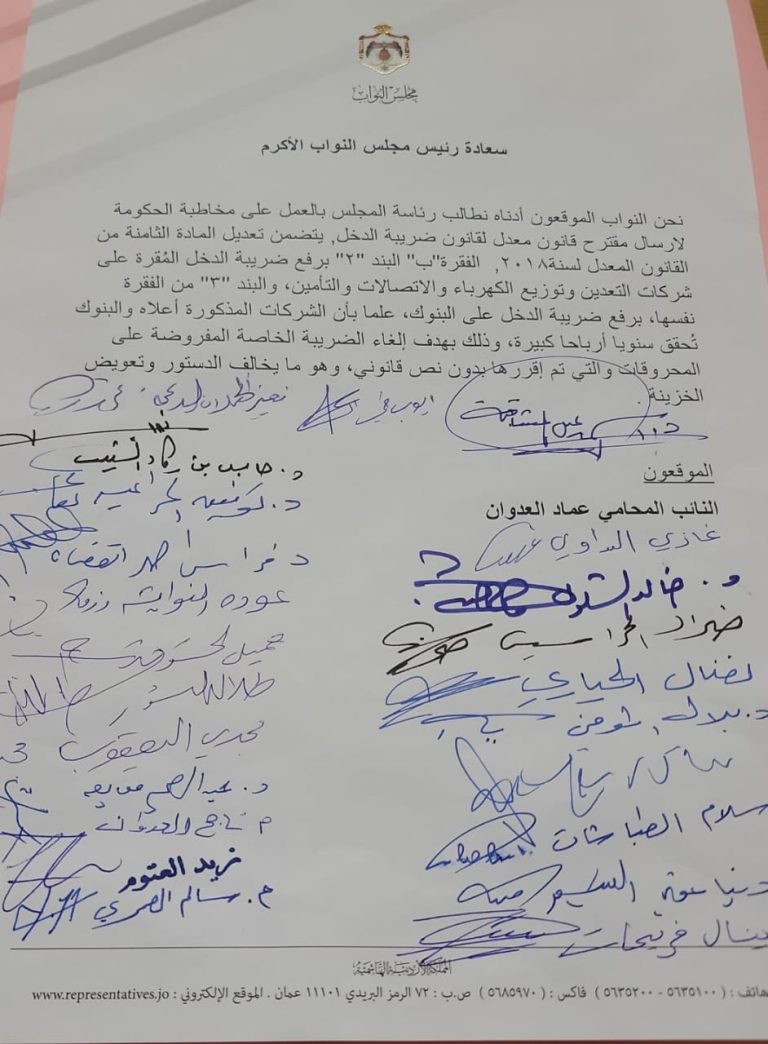 مجلس النواب
سعادة رئيس مجلس النواب الأكرم
نحن النواب الموقعون أدناه نطالب رئاسة المجلس بالعمل على مخاطبة الحكومة
لارسال مقترح قانون معدل لقانون ضريبة الدخل, يتضمن تعديل المادة الثامنة من
القانون المعدل لسنة٢٠١٨, الفقرة"ب" البند "٢" برفع ضريبة الدخل المُقرة على
شركات التعدين وتوزيع الكهرباء والاتصالات والتأمين، والبند "٣" من الفقرة
نفسها، برفع ضريبة الدخل على البنوك، علما بأن الشركات المذكورة أعلاه والبنوك
تُحقق سنويا أرباحا كبيرة، وذلك بهدف إلغاء الضريبة الخاصة المفروضة على
المحروقات والتي تم إقررها بدون نص قانوني، وهو ما يخالف الدستور وتعويض
الخزينة .
الموقعون
النائب المحامي عماد العدوان
غازي البداوي
د. خالد
ضرار الحراسيس
نضال الحياري
د. بلال المومني
سلام الطباشات
دينا
ينال فريحات
د.
د. فراس
عوده النوايشه
جميل
طلال النسور
مجدي اليعقوب
د. عبد الرحيم معايعه
م ناجح العدوان
فريد العتوم
م. سالم العمري
المملكة الأردنية الهاشمية
هاتف : (٥٦٣٥١٠٠ - ٥٦٣٥٢٠٠ ) فاكس : ( ٥٦٨٥٩٧٠ ) ص.ب : ٧٢ الرمز البريدي ١١١٠١ عمان . الموقع الإلكتروني : www.representatives.jo